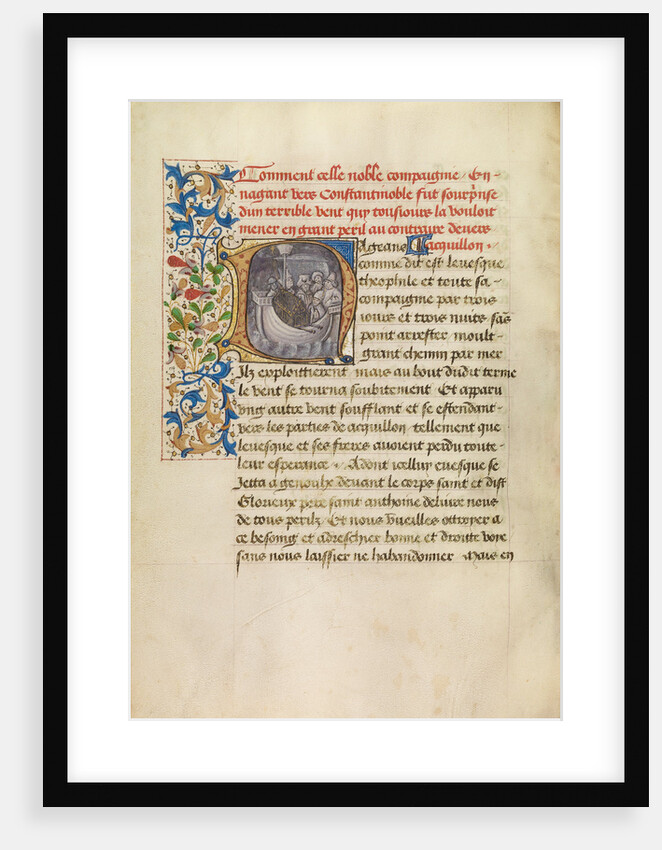 Comment celle noble compaignie En-
nagant vers Constantinoble fut sourprinse
dun terrible vent quy tousiours la vouloit
mener en grant peril au contraire devers
Nageans acquillon .
comme dit est levesque
theophile et toute sa
compaignie par trois
iours et trois nuits sās
point arrester moult
grant chemin par mer
Ilz exploittierent mais au bout dudit terme
le vent se tourna soubitement Et apparu
vng autre vent soufflant et se estendant
vers les parties de acquillon tellement que
levesque et ses freres avoient perdu toute
leur esperance . Adont icelluy evesque se
Jetta a genoulx devant le corps saint et dist
Glorieux pere saint anthoine delivre nous
de tous perilz Et nous vueilles ottroyer a
ce besoing et adreschier bonne et droitte voye
sans nous laissier ne habandonner Mais en